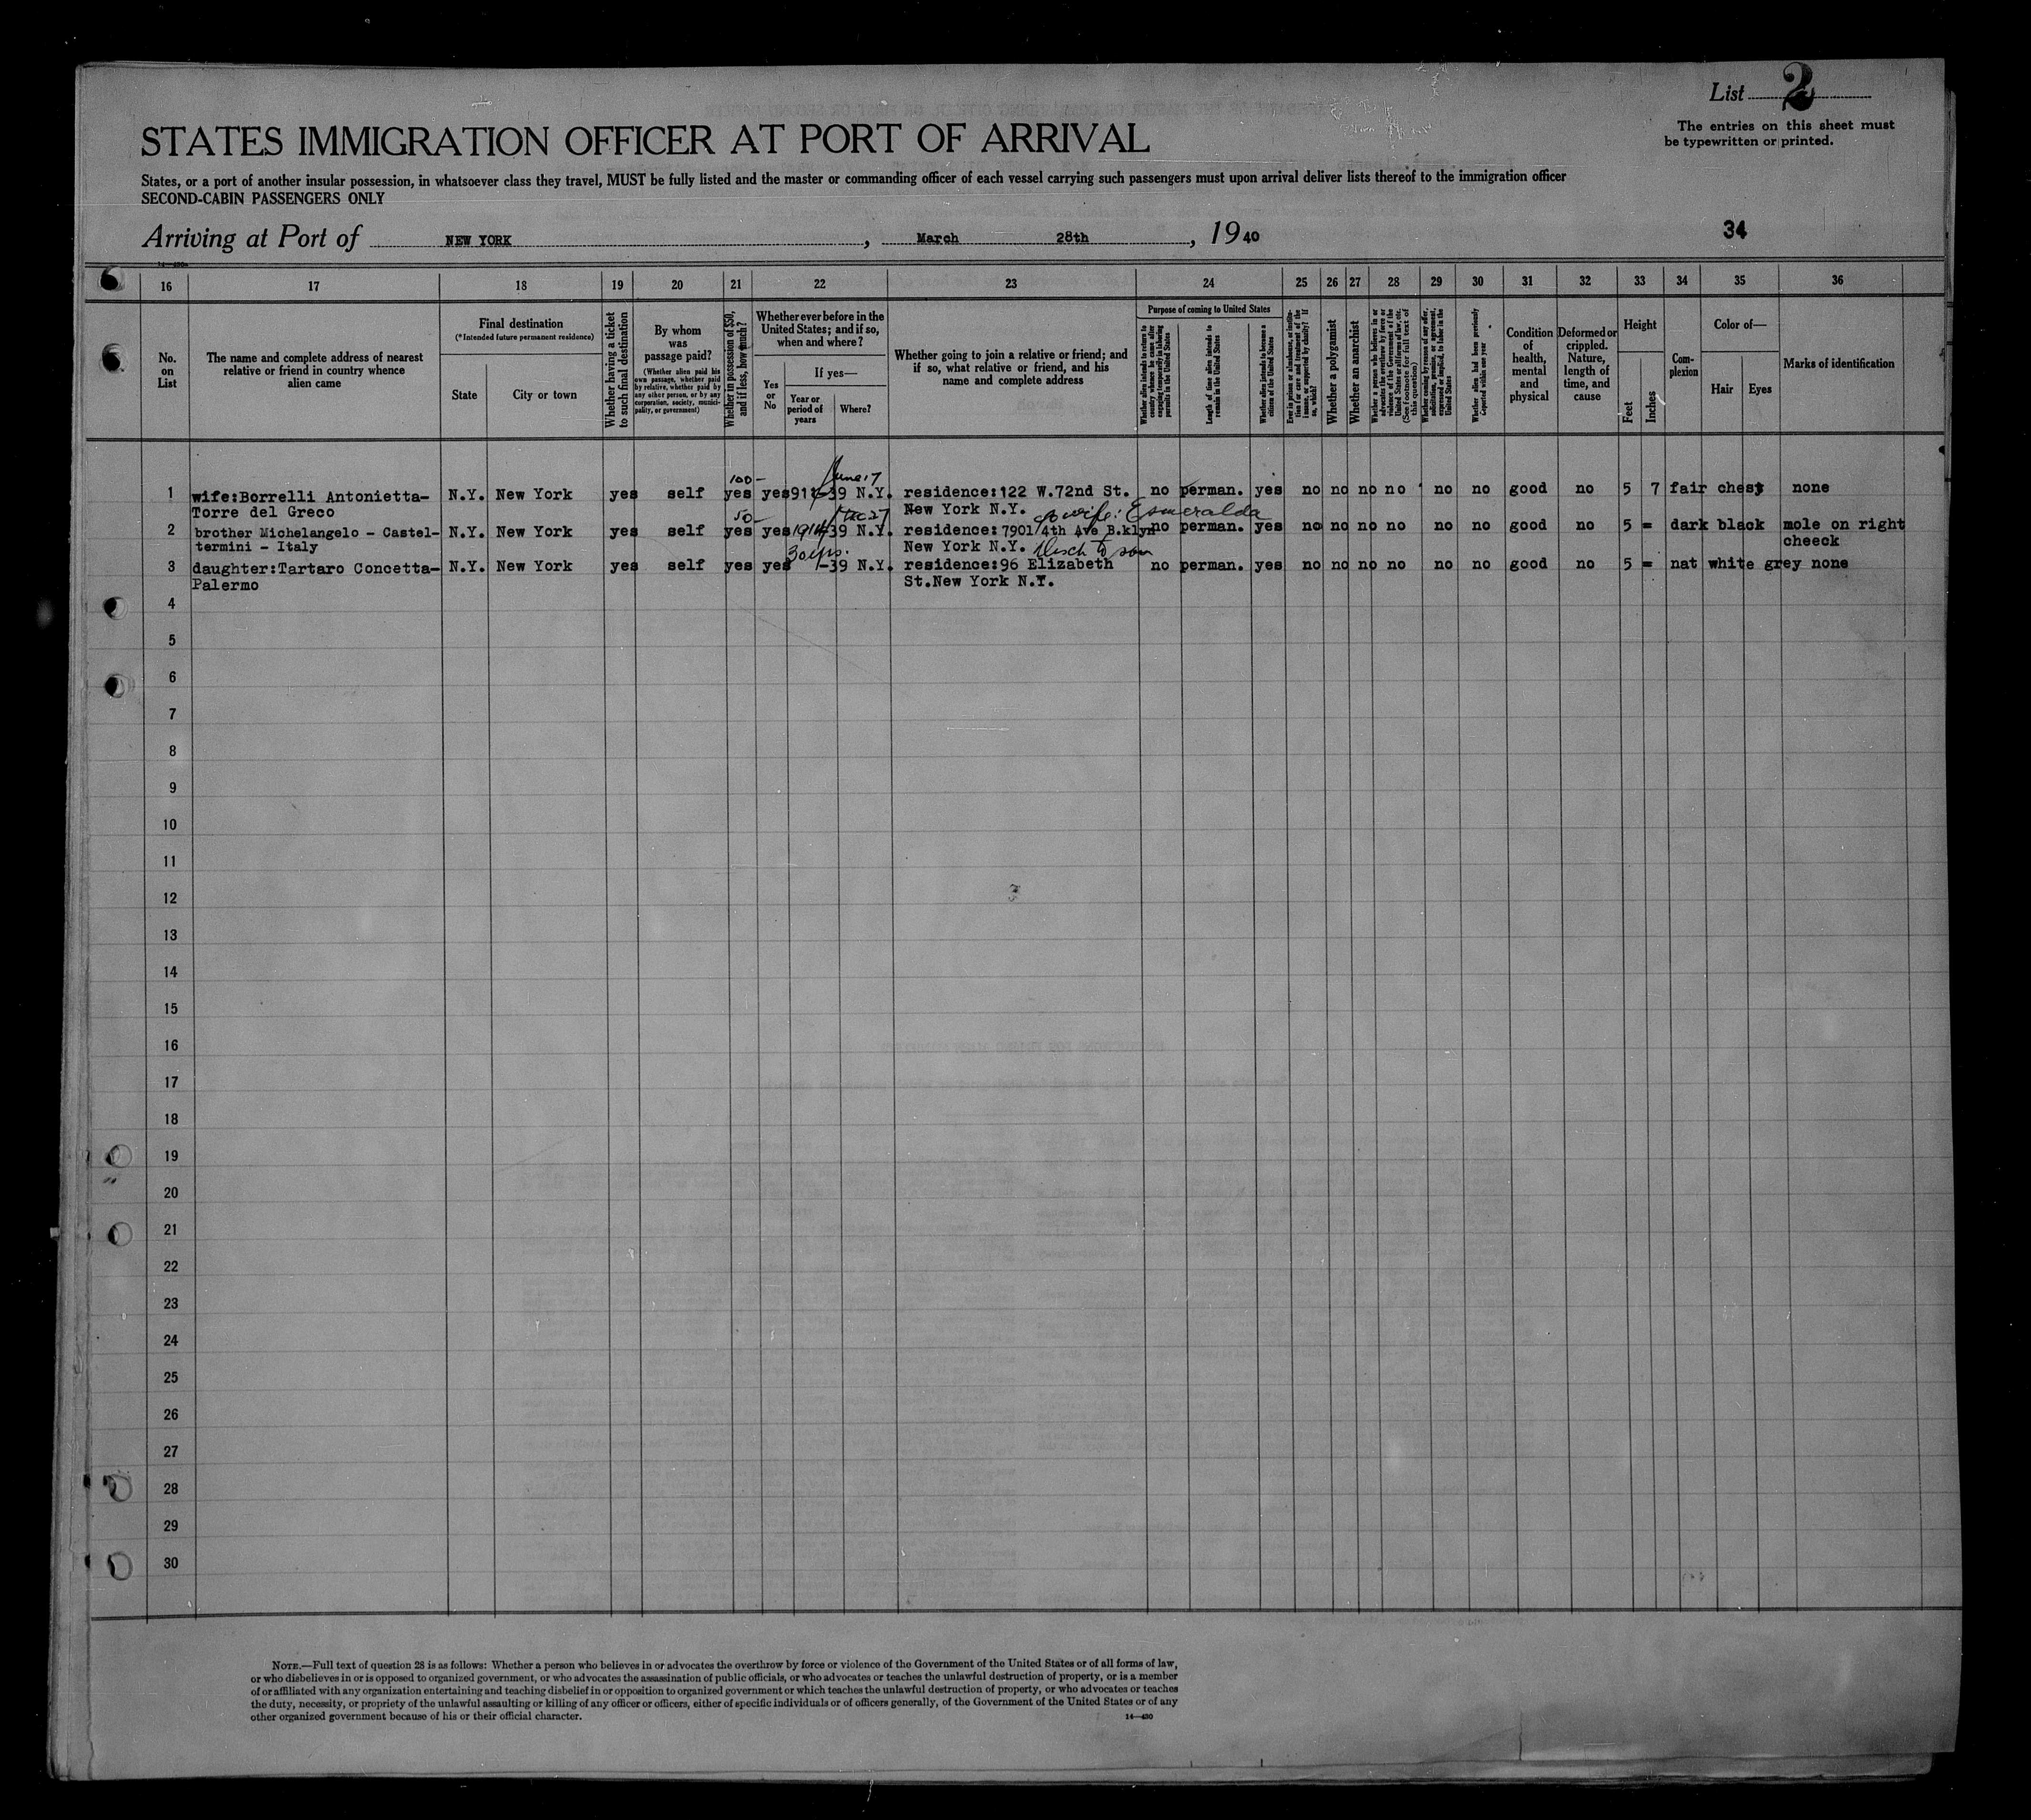 List 2
The entries on this sheet must
be typewritten or printed.
STATES IMMIGRATION OFFICER AT PORT OF ARRIVAL
States, or a port of another insular possession, in whatsoever class they travel, MUST be fully listed and the master or commanding officer of each vessel carrying such passengers must upon arrival deliver lists thereof to the immigration officer
SECOND-CABIN PASSENGERS ONLY
Arriving at Port of NEW YORK, March 28th, 1940
34
16 17 18 19 20 21 22 23 24 25 26 27 28 29 30 31 32 33 34 35 36
No.
on
List
The name and complete address of nearest
relative or friend in country whence
alien came
Final destination
(*Intended future permanent residence)
State
City or town
Whether having a ticket
to such final destination
By whom
was
passage paid?
(Whether alien paid his
own passage, whether paid
by relative, whether paid by
any other person, or by any
corporation, society, munici-
pality, or government)
Whether in possession of $50,
and if less, how much?
Whether ever before in the
United States; and if so,
when and where?
Yes
or
No
If yes—
Year or
period of
years
Where?
Whether going to join a relative or friend; and
if so, what relative or friend, and his
name and complete address
Purpose of coming to United States
Whether alien intends to return to
country whence he came after
engaging temporarily in laboring
pursuits in the United States
Length of time alien intends to
remain in the United States
Whether alien intends to become a
citizen of the United States
Ever in prison or almshouse, or institu-
tion for care and treatment of the
insane, or supported by charity? If
so, which?
Whether a polygamist
Whether an anarchist
Whether a person who believes in or
advocates the overthrow by force or
violence of the Government of the
United States or all forms of law, etc.
(See footnote for full text of
this question)
Whether coming by reason of any offer,
solicitation, promise, or agreement,
expressed or implied, to labor in the
United States
Whether alien had been previously
deported within one year
Condition
of
health,
mental
and
physical
Deformed or
crippled.
Nature,
length of
time, and
cause
Height
Feet
Inches
Com-
plexion
Color of—
Hair
Eyes
Marks of identification
100- June 17
1 wife:Borrelli Antonietta- N.Y. New York yes self yes yes 911-39 N.Y. residence:122 W.72nd St. no perman. yes no no no no no no good no 5 7 fair chest none
Torre del Greco New York N.Y. wife: Esmeralda
50- Dec 27
2 brother Michelangelo - Castel- N.Y. New York yes self yes yes 1914/39 N.Y. residence: 7901/4th Ave B.klyn no perman. yes no no no no no no good no 5 = dark black mole on right
termini - Italy New York N.Y. to son cheeck
30 yrs.
3 daughter:Tartaro Concetta- N.Y. New York yes self yes yes -39 N.Y. residence:96 Elizabeth no perman. yes no no no no no no good no 5 = nat white grey none
Palermo St.New York N.Y.
4
5
6
7
8
9
10
11
12
13
14
15
16
17
18
19
20
21
22
23
24
25
26
27
28
29
30
NOTE.—Full text of question 28 is as follows: Whether a person who believes in or advocates the overthrow by force or violence of the Government of the United States or of all forms of law,
or who disbelieves in or is opposed to organized government, or who advocates the assassination of public officials, or who advocates or teaches the unlawful destruction of property, or is a member
of or affiliated with any organization entertaining and teaching disbelief in or opposition to organized government or which teaches the unlawful destruction of property, or who advocates or teaches
the duty, necessity, or propriety of the unlawful assaulting or killing of any officer or officers, either of specific individuals or of officers generally, of the Government of the United States or of any
other organized government because of his or their official character.
14—430